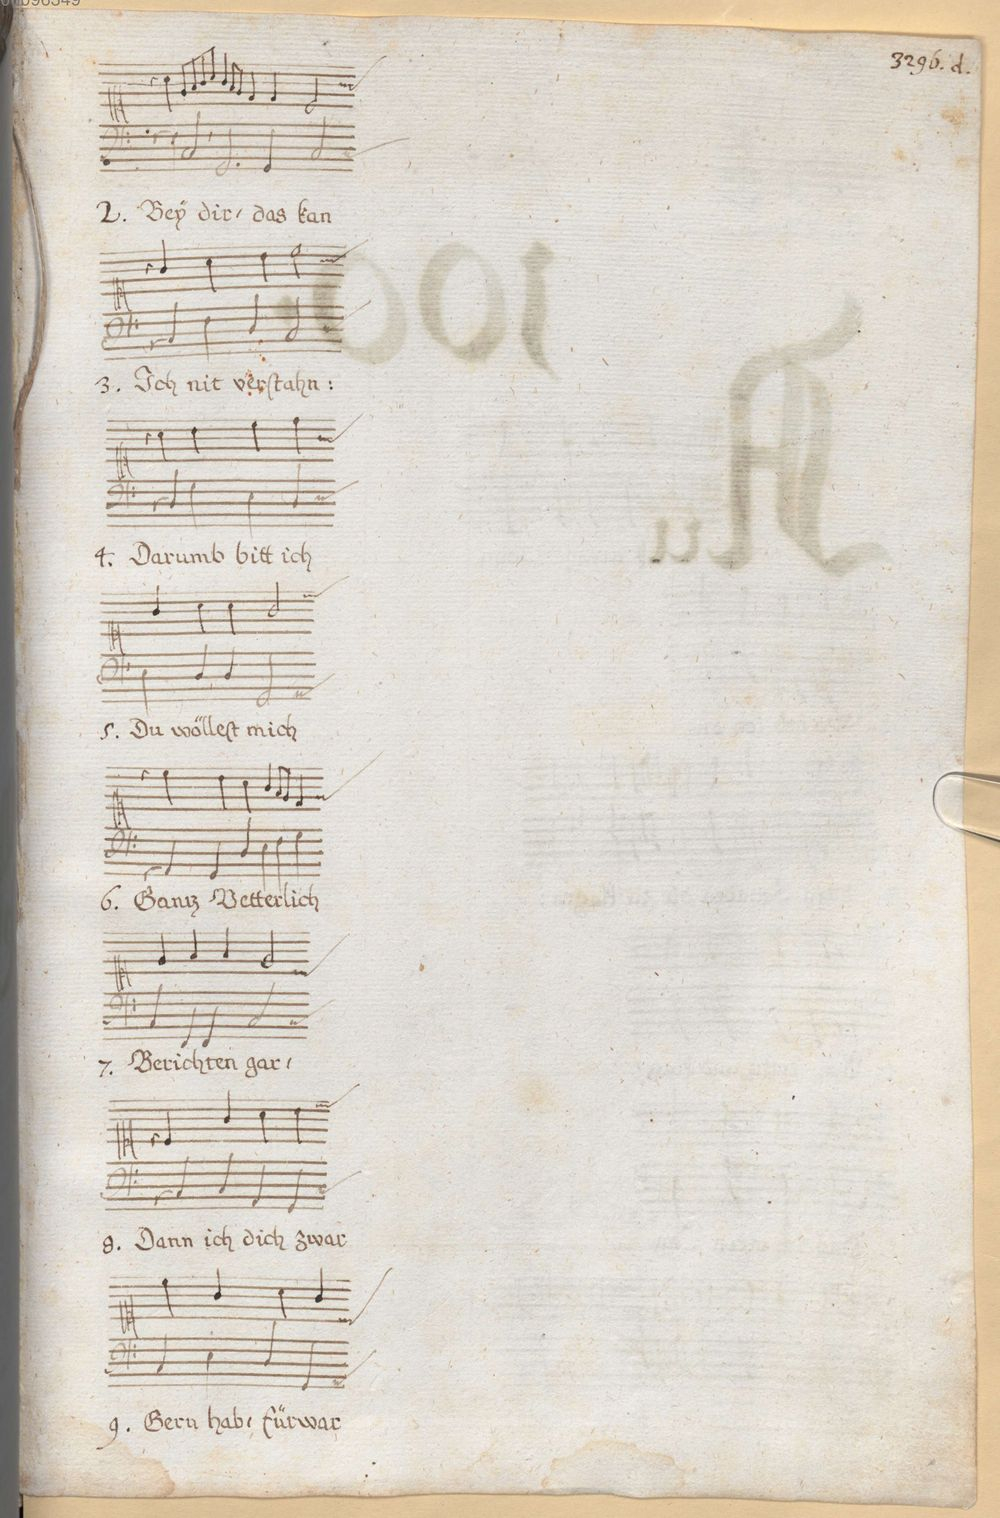 3296. d.
2. Beÿ dir, das kan
3. Ich nit verstahn:
4. Darumb bitt ich
5. Du wöllest mich
6. Gantz Vetterlich
7. Berichten gar,
8. Dann ich dich zwar
9. Gern hab, fürwar